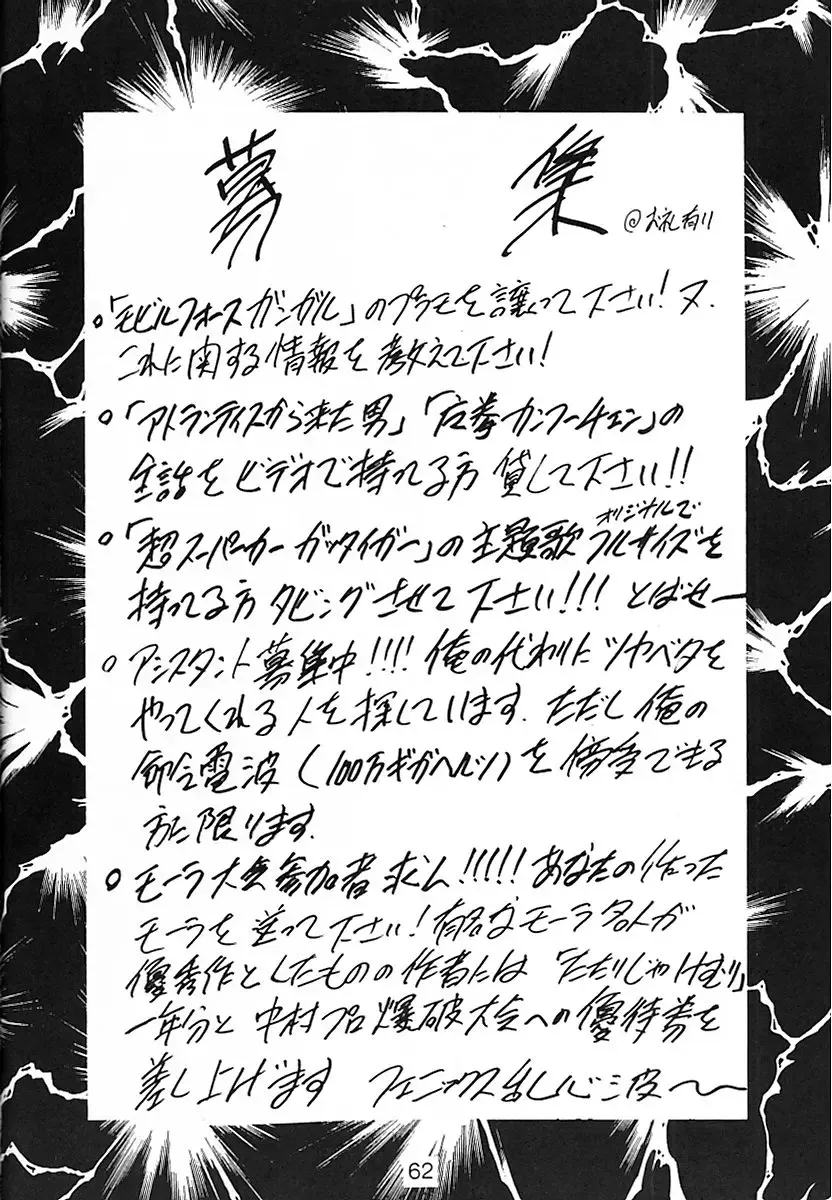 募集 @お礼有り
○「モビルフォースガンガル」のプラモを譲って下さい!又、
これに関する情報を教えて下さい!
○「アトランティスから来た男」「石拳カンフーチェン」の
全話をビデオで持ってる方貸して下さい!!
オリジナルで
○「超スーパーカーガッタイガー」の主題歌フルサイズを
持ってる方ダビングさせて下さい!!! とばせー
○アシスタント募集中!!!! 俺の代わりにツヤベタを
やってくれる人を探しています。ただし俺の
命令電波(100万ギガヘルツ)を傍受できる
方に限ります。
○モーラ大会参加者求ム!!!!! あなたの作った
モーラを塗って下さい!有名なモーラ名人が
優秀作としたものの作者には「たたりじゃけむり」
一年分と中村プロ爆破大会への優待券を
差し上げます フェニックス乱心波〜〜
62